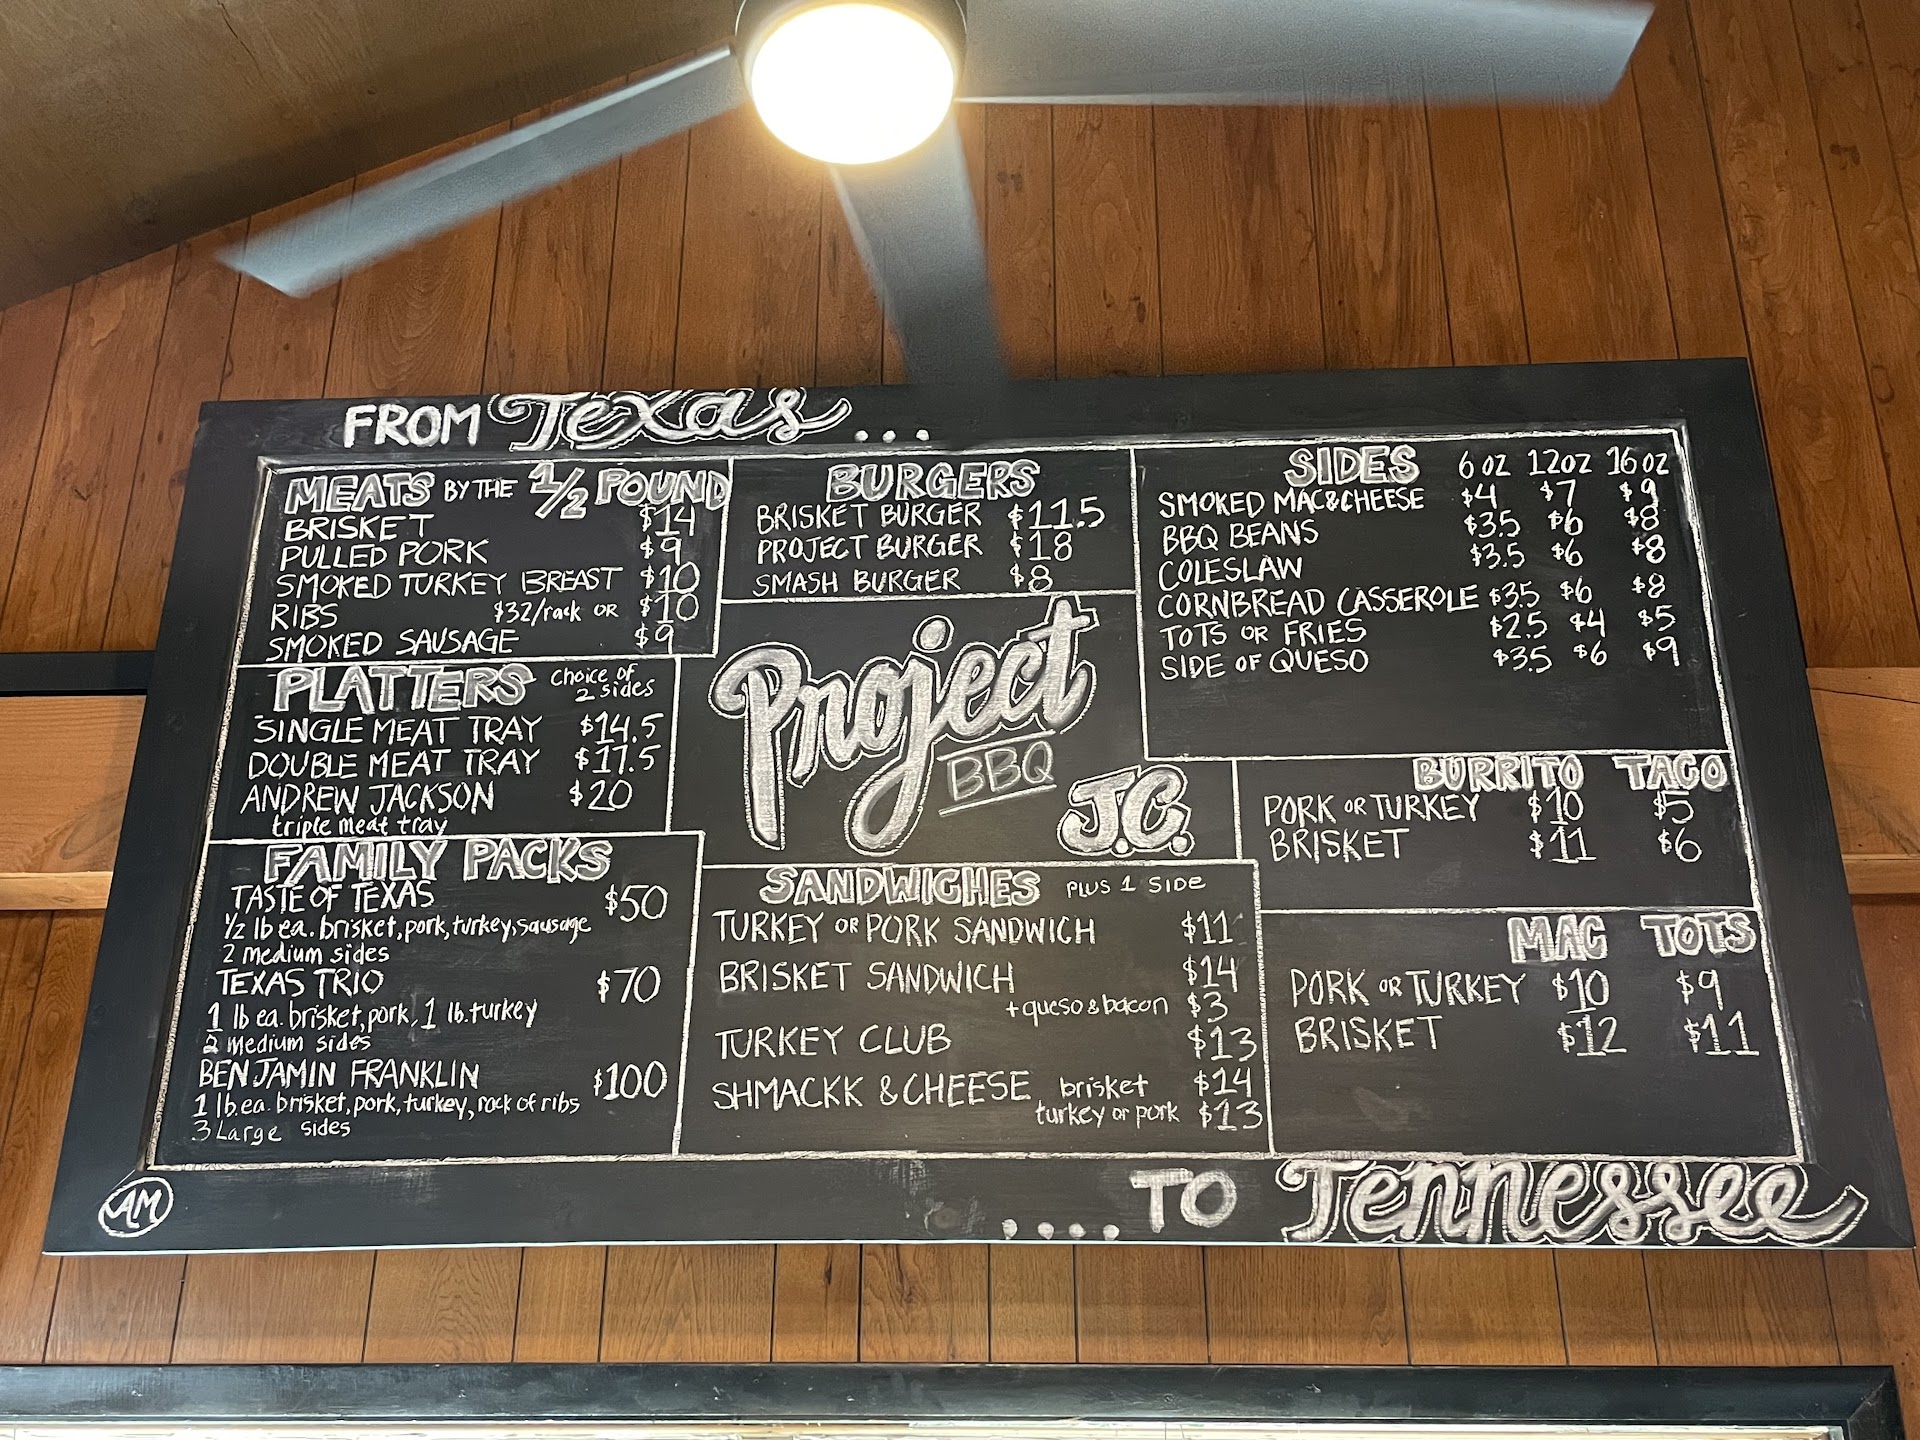 FROM Texas...
MEATS BY THE 1/2 POUND
BRISKET $14
PULLED PORK $9
SMOKED TURKEY BREAST $10
RIBS $32/rack OR $10
SMOKED SAUSAGE $9
PLATTERS choice of 2 sides
SINGLE MEAT TRAY $14.5
DOUBLE MEAT TRAY $17.5
ANDREW JACKSON $20
triple meat tray
FAMILY PACKS
TASTE OF TEXAS $50
1/2 lb ea. brisket, pork, turkey, sausage
2 medium sides
TEXAS TRIO $70
1 lb ea. brisket, pork, 1 lb. turkey
2 medium sides
BENJAMIN FRANKLIN $100
1 lb. ea. brisket, pork, turkey, rack of ribs
3 Large sides
BURGERS
BRISKET BURGER $11.5
PROJECT BURGER $18
SMASH BURGER $8
Project
BBQ
J.C.
SANDWICHES PLUS 1 SIDE
TURKEY OR PORK SANDWICH $11
BRISKET SANDWICH $14
+queso & bacon $3
TURKEY CLUB $13
SHMACKK & CHEESE brisket $14
turkey or pork $13
SIDES 6 oz 12oz 16 oz
SMOKED MAC&CHEESE $4 $7 $9
BBQ BEANS $3.5 $6 $8
COLESLAW $3.5 $6 $8
CORNBREAD CASSEROLE $3.5 $6 $8
TOTS OR FRIES $2.5 $4 $5
SIDE OF QUESO $3.5 $6 $9
BURRITO TACO
PORK OR TURKEY $10 $5
BRISKET $11 $6
MAC TOTS
PORK OR TURKEY $10 $9
BRISKET $12 $11
AM
....TO Tennessee